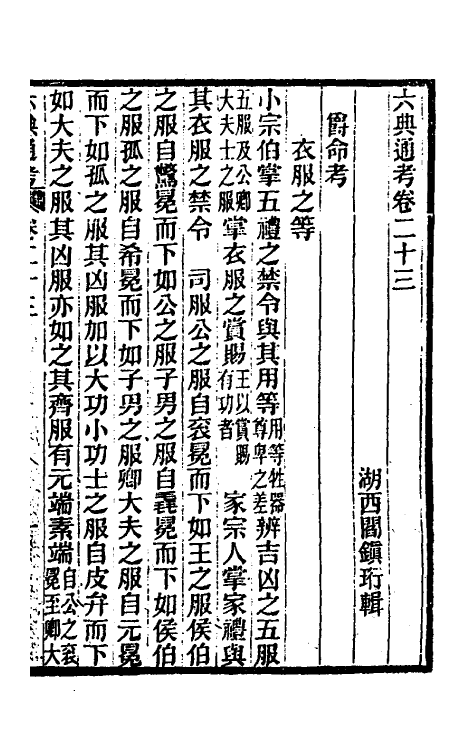 六典通考卷二十三
湖西閻鎭珩輯
爵命考
衣服之等
小宗伯掌五禮之禁令與其用等用等牲器尊卑之差辨吉凶之五服
五服及公卿大夫士之服掌衣服之賞賜王以賞賜有功者　家宗人掌家禮與
其衣服之禁令　司服公之服自袞冕而下如王之服侯伯
之服自鷩冕而下如公之服子男之服自毳冕而下如侯伯
之服孤之服自希冕而下如子男之服卿大夫之服自元冕
而下如孤之服其凶服加以大功小功士之服自皮弁而下
如大夫之服其凶服亦如之其齊服有元端素端自公之袞冕至卿大
六典通考卷二十三